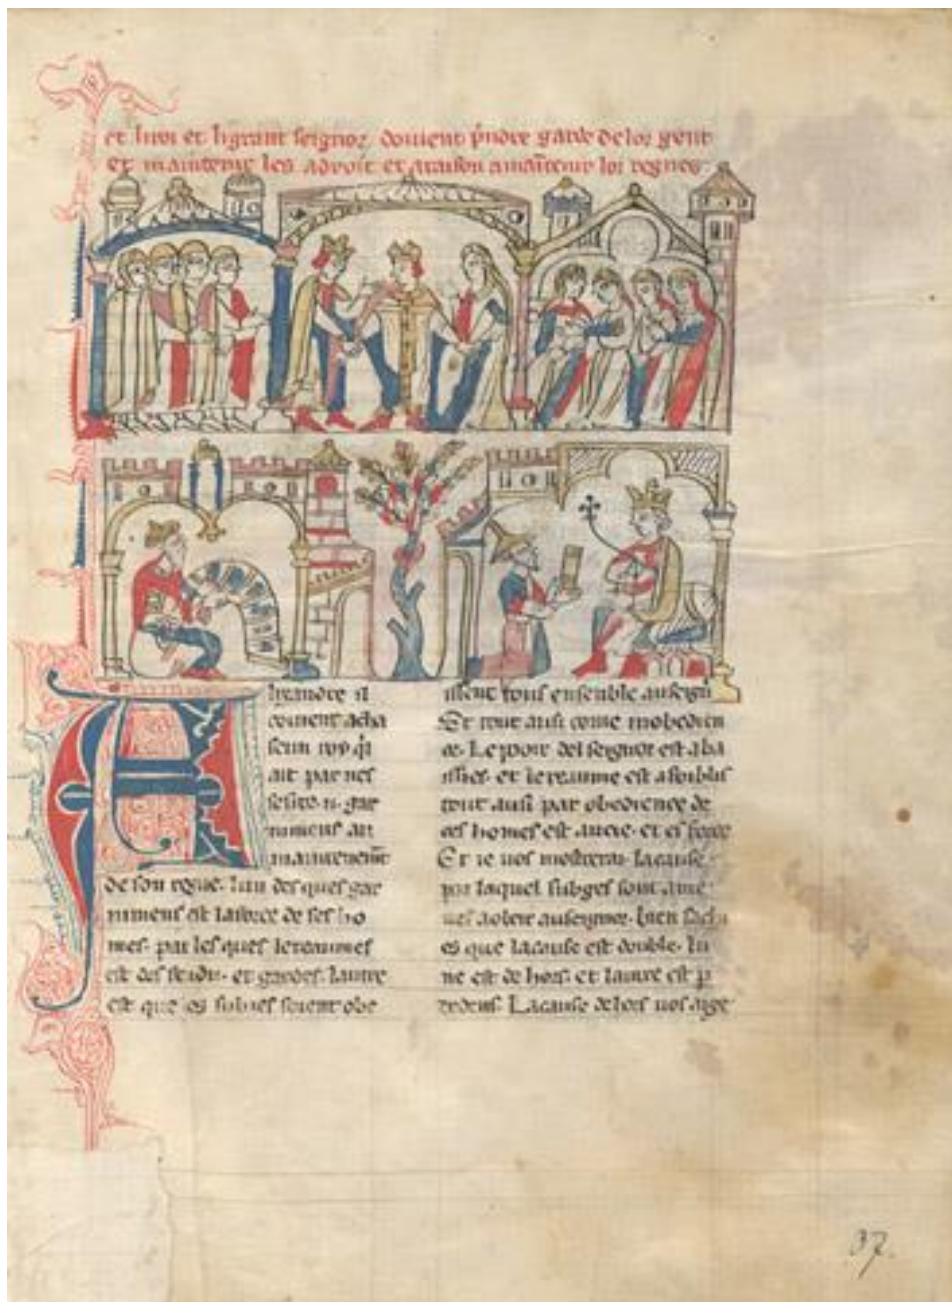 et li roi et li grant seignor doiuent p̃ndre garde de lor gent
et maintenir les a droit et a raison a maĩtenir lor regnes
A
lixandre il
couient a cha
scun roy q̃l
ait par nes
gar
nimens au
maintenemẽt
de son regne. lun des ques gar
nimens est la force de ses ho
mes. par les ques le reaumes
est et gardes. lautre
est que les soient obe
issent tous ensenble au seign̄
Et tout ausi come inobedien
ce. Le pooir del seignor est aba
issies. et le reaume est afoiblis
tout ausi par obedience de
ces homes est et force
Et ie uos mosterai. la cause
por laquel subges sont ame
nes a obeir au seignor. bien sachi
es que la cause est double. lu
ne est de hors. et lautre est p
dedens. La cause de hors uos
37.